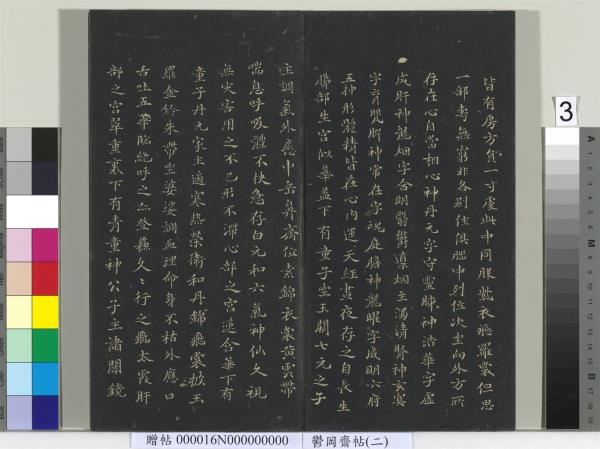 皆有房方負一寸處此中同服紫衣飛羅裳但思
一部壽無窮非各別住俱腦中列位次坐向外方所
存在心自當相心神丹元字守靈肺神浩華字虛
成肝神龍烟字含明翳鬱導烟主濁清腎神玄冥
字育嬰脾神常在字魂庭膽神龍曜字威明六府
五神形體精皆在心內運天經晝夜存之自長生
肺部生宮似華蓋下有童子坐玉闕七元之子
主調氣外應中岳鼻齊位素錦衣裳黃雲帶
喘息呼吸體不快急存白元和六氣神仙久視
無災害用之不已形不滯心部之宮蓮含華下有
童子丹元家主適寒熱榮衛和丹錦飛裳披玉
羅金鈴朱帶坐婆娑調血理命身不枯外應口
舌吐五華臨絕呼之亦登蘇久〻行之飛太霞肝
部之宮翠重裏下有青童神公子主諸關鏡
3
贈帖 000016N000000000 鬱岡齋帖(二)